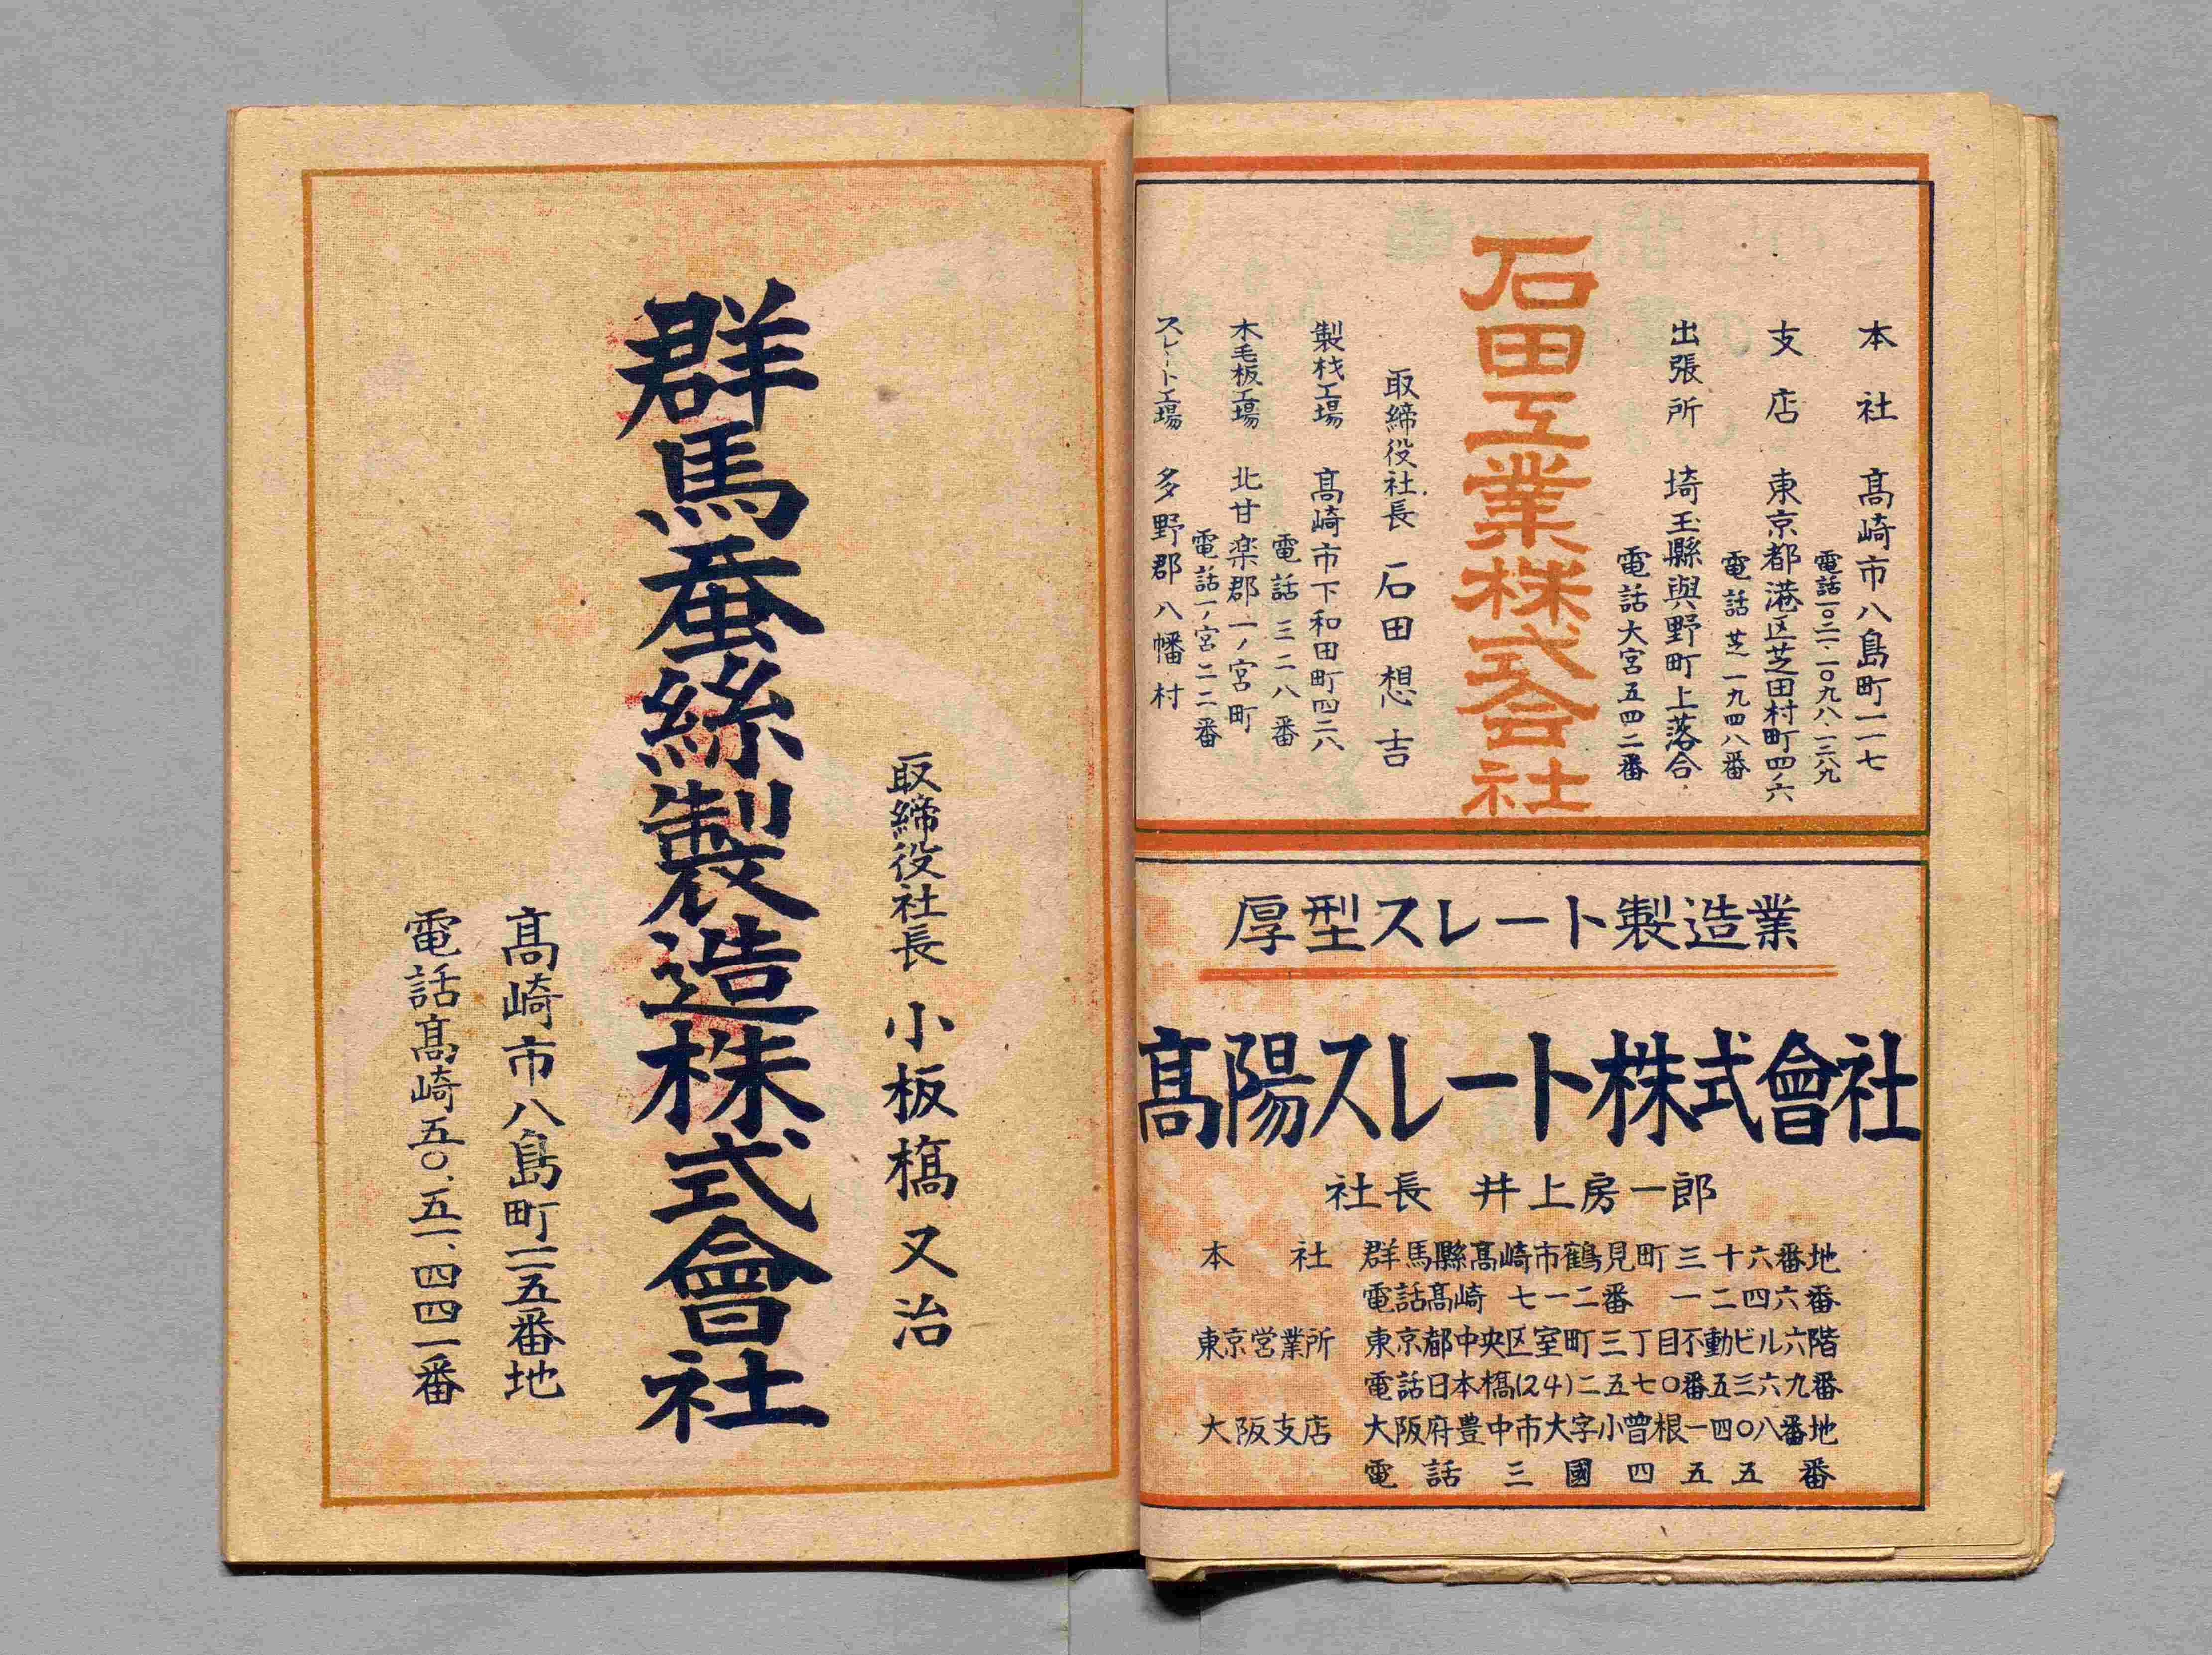 本社 髙崎市八島町一一七
電話一〇二一・一〇九八・一三八九
支店 東京都港区芝田村町四ノ六
電話 芝一九四八番
出張所 埼玉縣與野町上落合
電話大宮五四二番
石田工業株式会社
取締役社長 石田想吉
製材工場 髙崎市下和田町四二八
電話 三二八番
木毛板工場 北甘楽郡一ノ宮町
電話一ノ宮二二番
スレート工場 多野郡八幡村
厚型スレート製造業
髙陽スレート株式會社
社長 井上房一郎
本社 群馬縣髙崎市鶴見町三十六番地
電話髙崎 七一二番 一二四六番
東京営業所 東京都中央区室町三丁目不動ビル六階
電話日本橋(24)二五七〇番五三六九番
大阪支店 大阪府豊中市大字小曽根一四〇八番地
電話三國四五五番
取締役社長 小板橋又治
群馬蚕絲製造株式會社
髙崎市八島町一二五番地
電話髙崎五〇、五一、四四一番